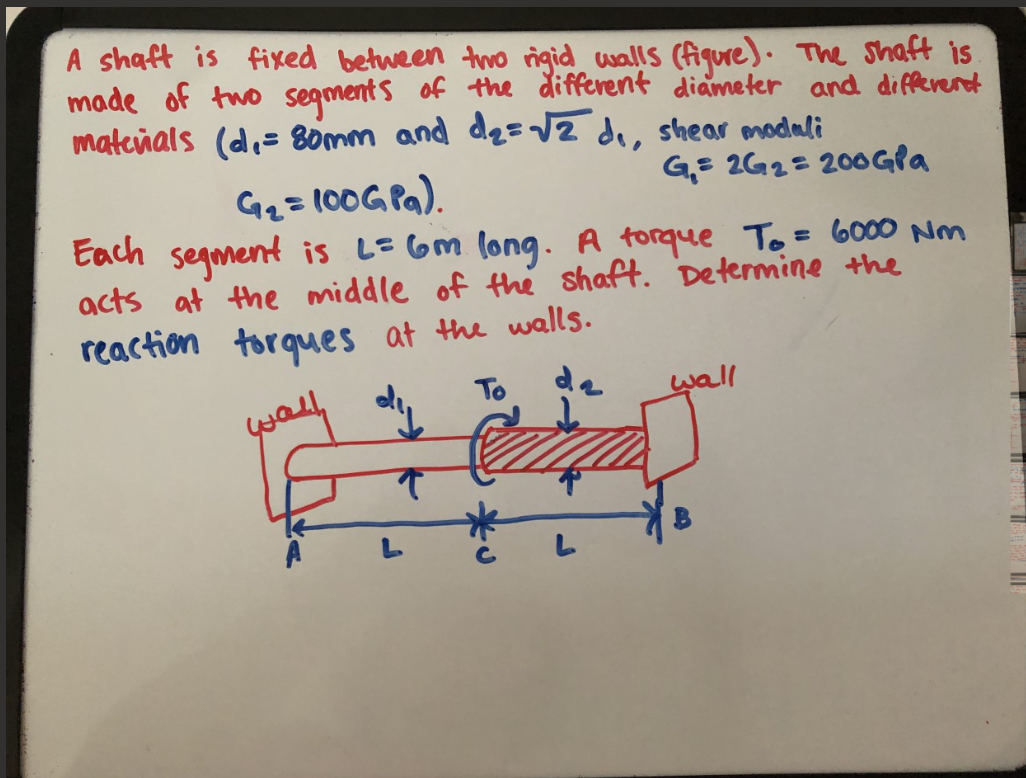 A shaft is fixed between two rigid walls (figure). The shaft is
made of two segments of the different diameter and different
materials (d₁= 80mm and d₂= √2 d₁, shear moduli
G₁= 2G₂= 200GPa
G₂= 100GPa).
Each segment is L= 6m long. A torque T₀= 6000 Nm
acts at the middle of the shaft. Determine the
reaction torques at the walls.
wall d₁ To d₂ wall
A L C L B